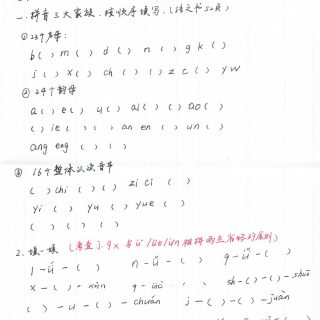 一.拼音三大家族,按顺序填写.(语文书52页)
①23个声母:
b ( ) m ( ) d ( ) n ( ) g k ( )
j ( ) x ( ) ch ( ) ( ) z c ( ) y w
② 24个韵母
a ( ) e ( ) u ( ) ai ( ) ( ) ao ( )
( ) ie ( ) ( ) an en ( ) un ( )
ang eng ( ) ( )
③ 16个整体认读音节
( ) chi ( ) ( ) zi ci ( )
yi ( ) yu ( ) yue ( )
( ) ( ) ( ) ( )
2. 填一填 (考查j.q.x 与 ü/üe/ün 相拼两点省略的原则)
l-ǚ-( ) n-ǚ-( ) q-ǔ-( )
x-( )-xún q-üē
sh-( )-( )-shuō
( )-u-( )-chuán j-( )-( )-juàn